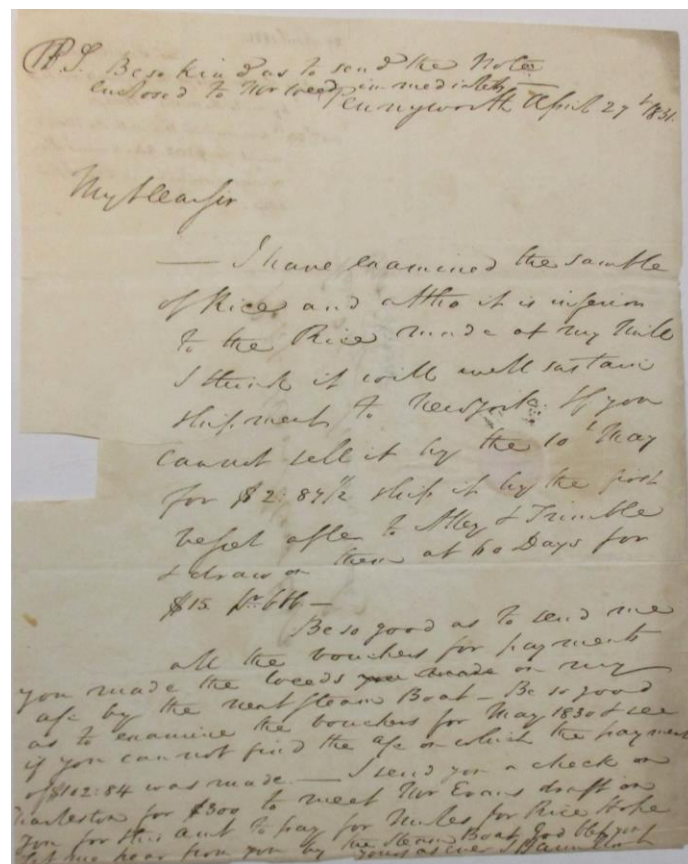 P.S. Be so kind as to send the Note
enclosed to Mr Weed immediately
Pennyworth April 27t 1831.
My Dear Sir
— I have examined the Sample
of Rice and altho it is inferior
to the Rice made at my Mill
I think it will well sustain
shipment to New York. If you
cannot sell it by the 10t May
for $2:87 1/2 ship it by the first
Vessel after to Alley & Trimble
& draw on them at 60 Days for
$15 pr bb—
Be so good as to send me
all the vouchers for payments
you made the Weeds on my
a/c by the next Steam Boat — Be so good
as to examine the vouchers for May 1830 & see
if you can not find the a/c on which the payment
of $102:84 was made. — I send you a check on
Charleston for $300 to meet Mr Evans draft on
you for this amt to pay for Mules for Rice Hope
Let me hear from you by the Steam Boat, God bless you
yours as ever